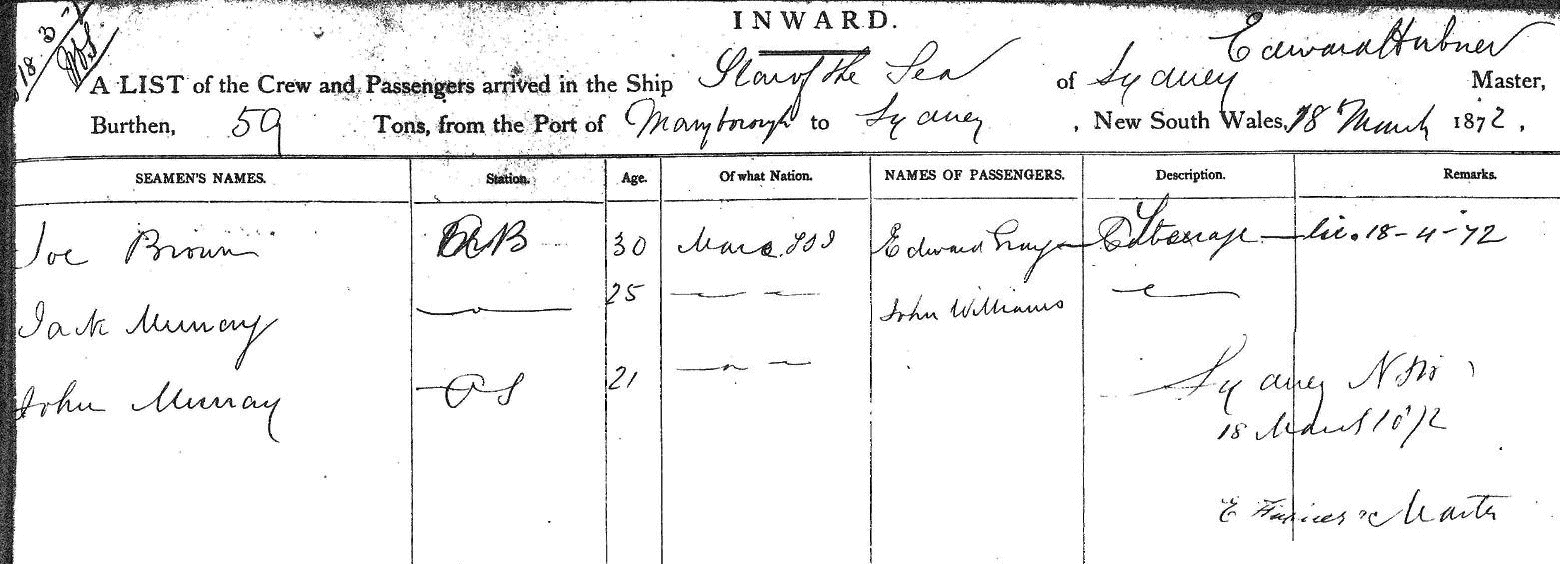 18.3.7
INWARD.
A LIST of the Crew and Passengers arrived in the Ship Star of the Sea of Sydney Edward Hubner Master,
Burthen, 59 Tons, from the Port of Maryborough to Sydney, New South Wales, 18 March 1872.
SEAMEN'S NAMES. Station. Age. Of what Nation. NAMES OF PASSENGERS. Description. Remarks.
Joe Brown AB 30 Edward Gray Steerage 18-4-72
Jack Murray 25 John Williams
John Murray OS 21
Sydney NSW
18 March 1872
E Master